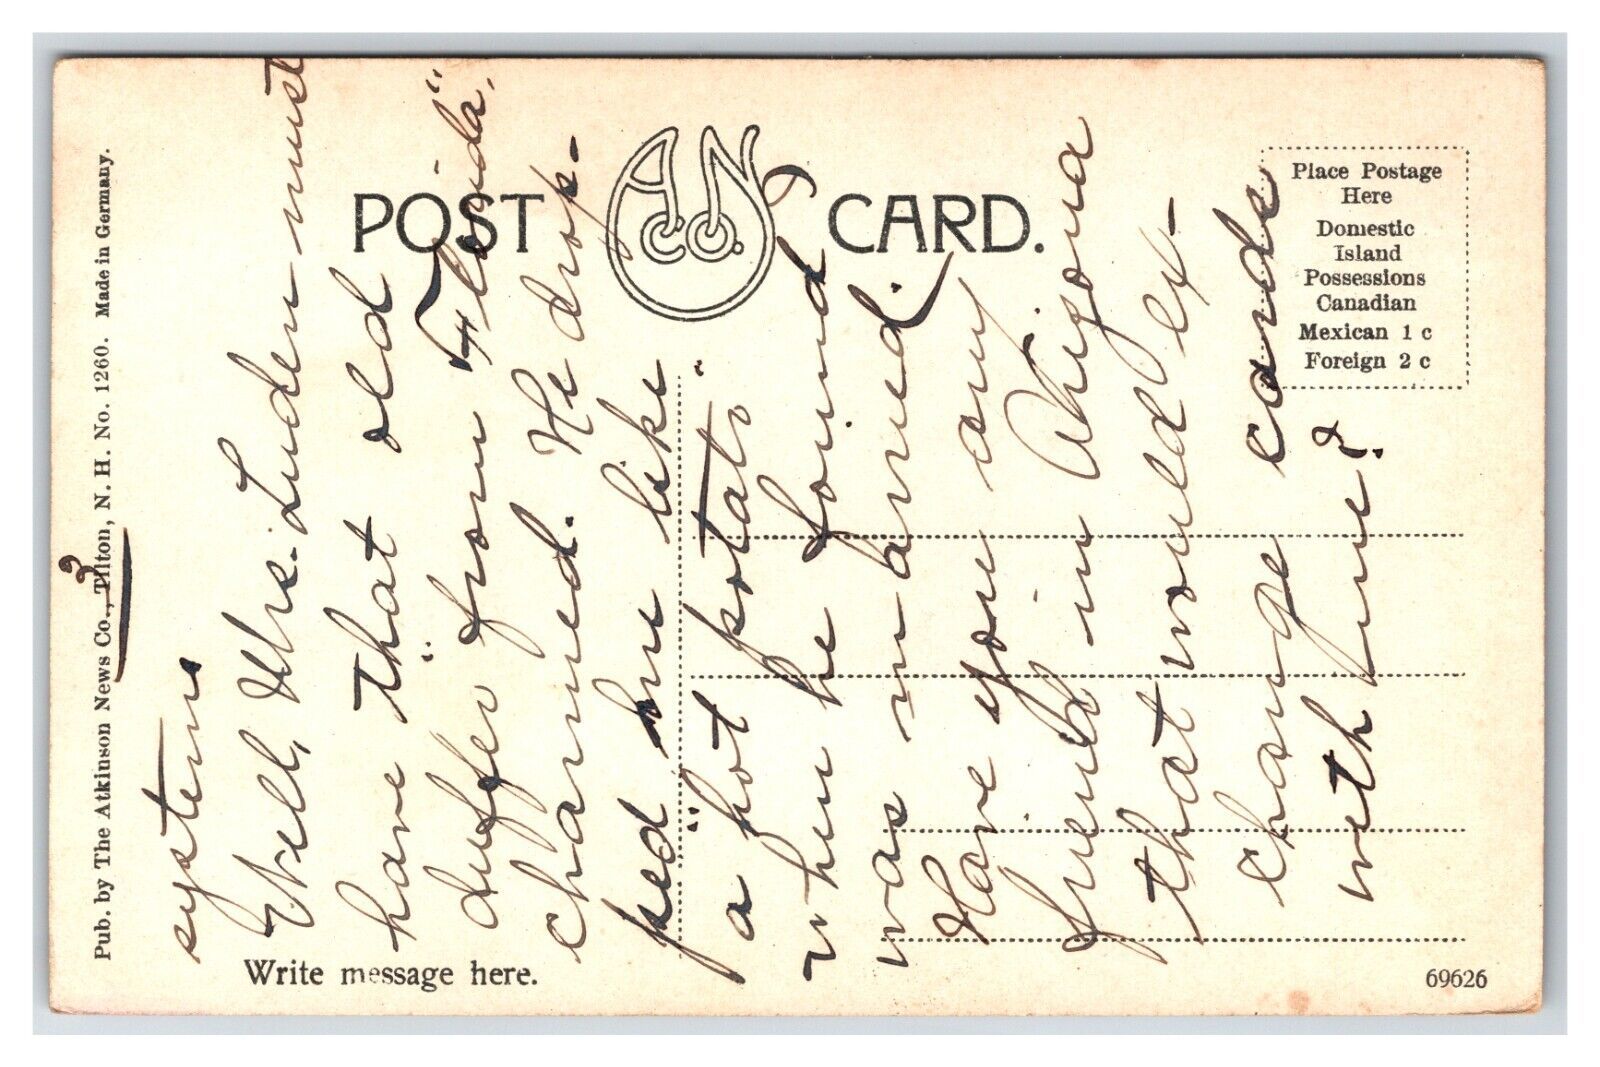 POST CARD.
A N Co.
Place Postage
Here
Domestic
Island
Possessions
Canadian
Mexican 1 c
Foreign 2 c
Pub. by The Atkinson News Co., Tilton, N. H. No. 1260. Made in Germany.
3
systems
Well, Mrs. Luden must
have "that old
duffer from Florida"
charmed. He drop-
ped her like
a "hot potato"
when he found
was married.
Have you any
friends in Arizona
that would ex-
change cards
with me?
Write message here.
69626